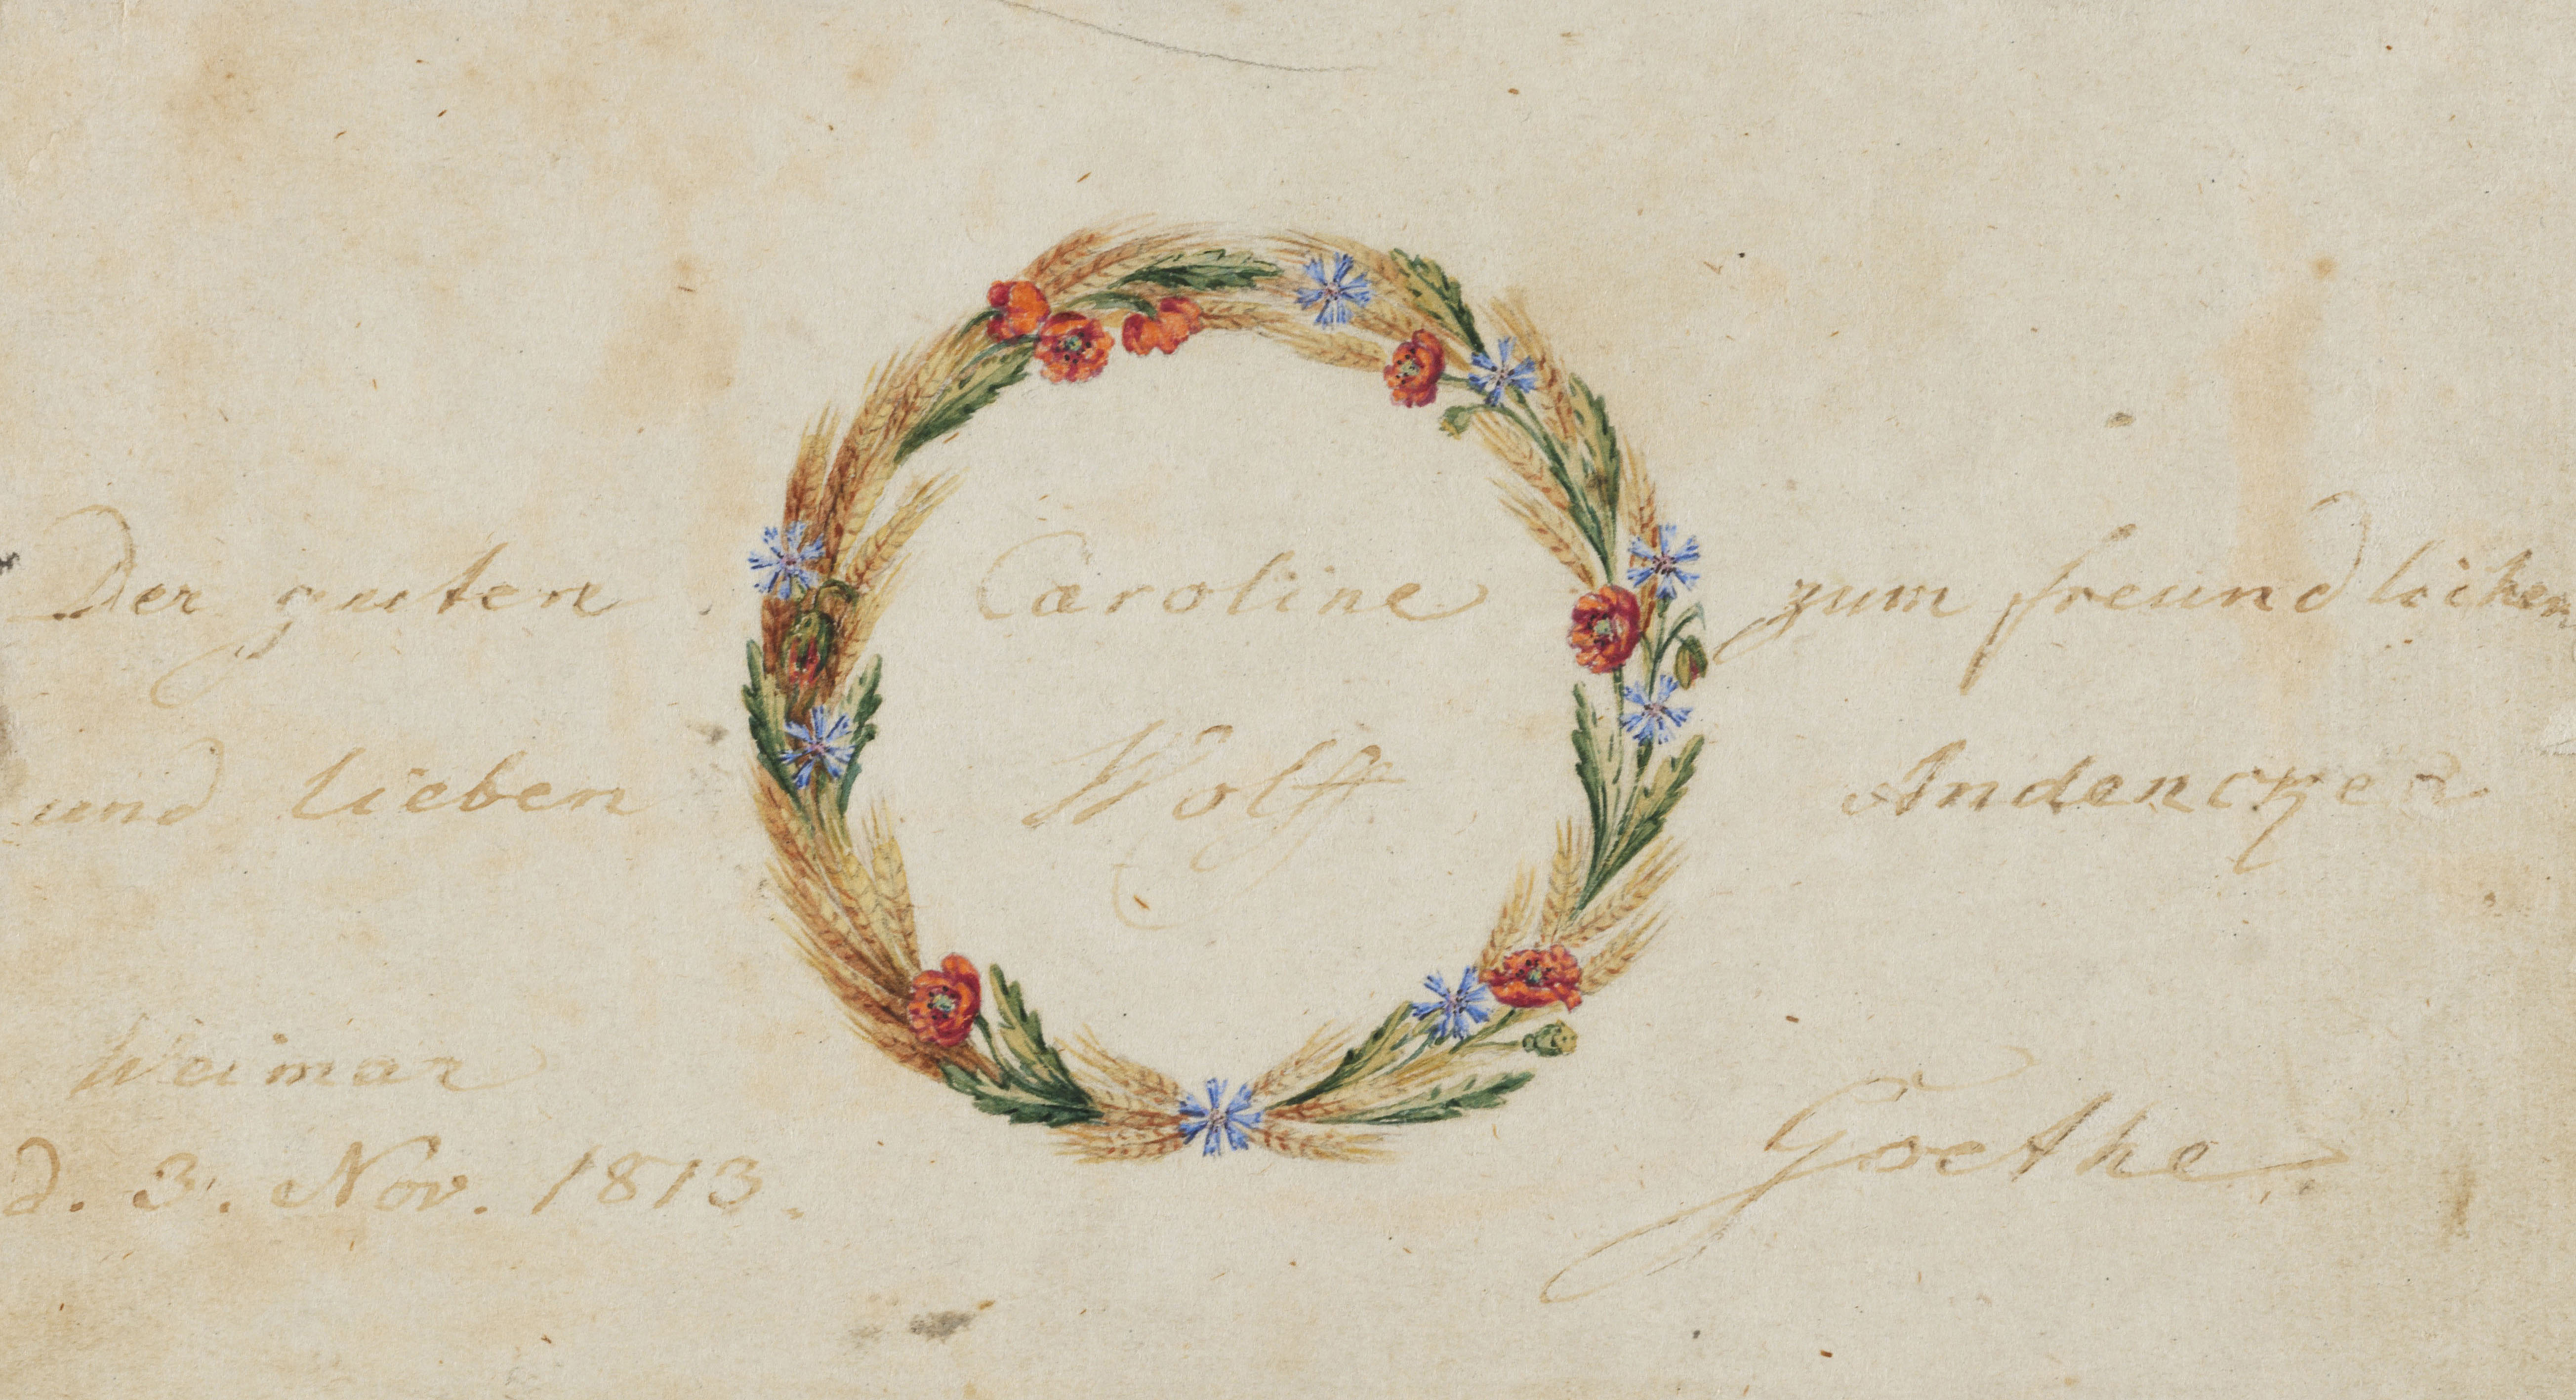 Der guten Caroline zum freundlichen
und lieben Wolff Andencken
Weimar
d. 3. Nov. 1813.
Goethe